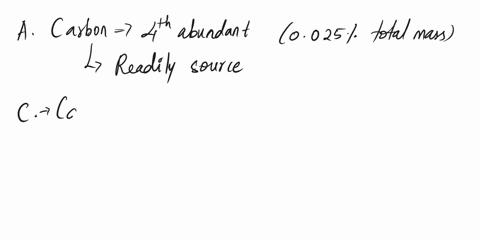 A. Carbon => 4th abundant (0.025% total mass)
↳ Readily source
C. → Ca